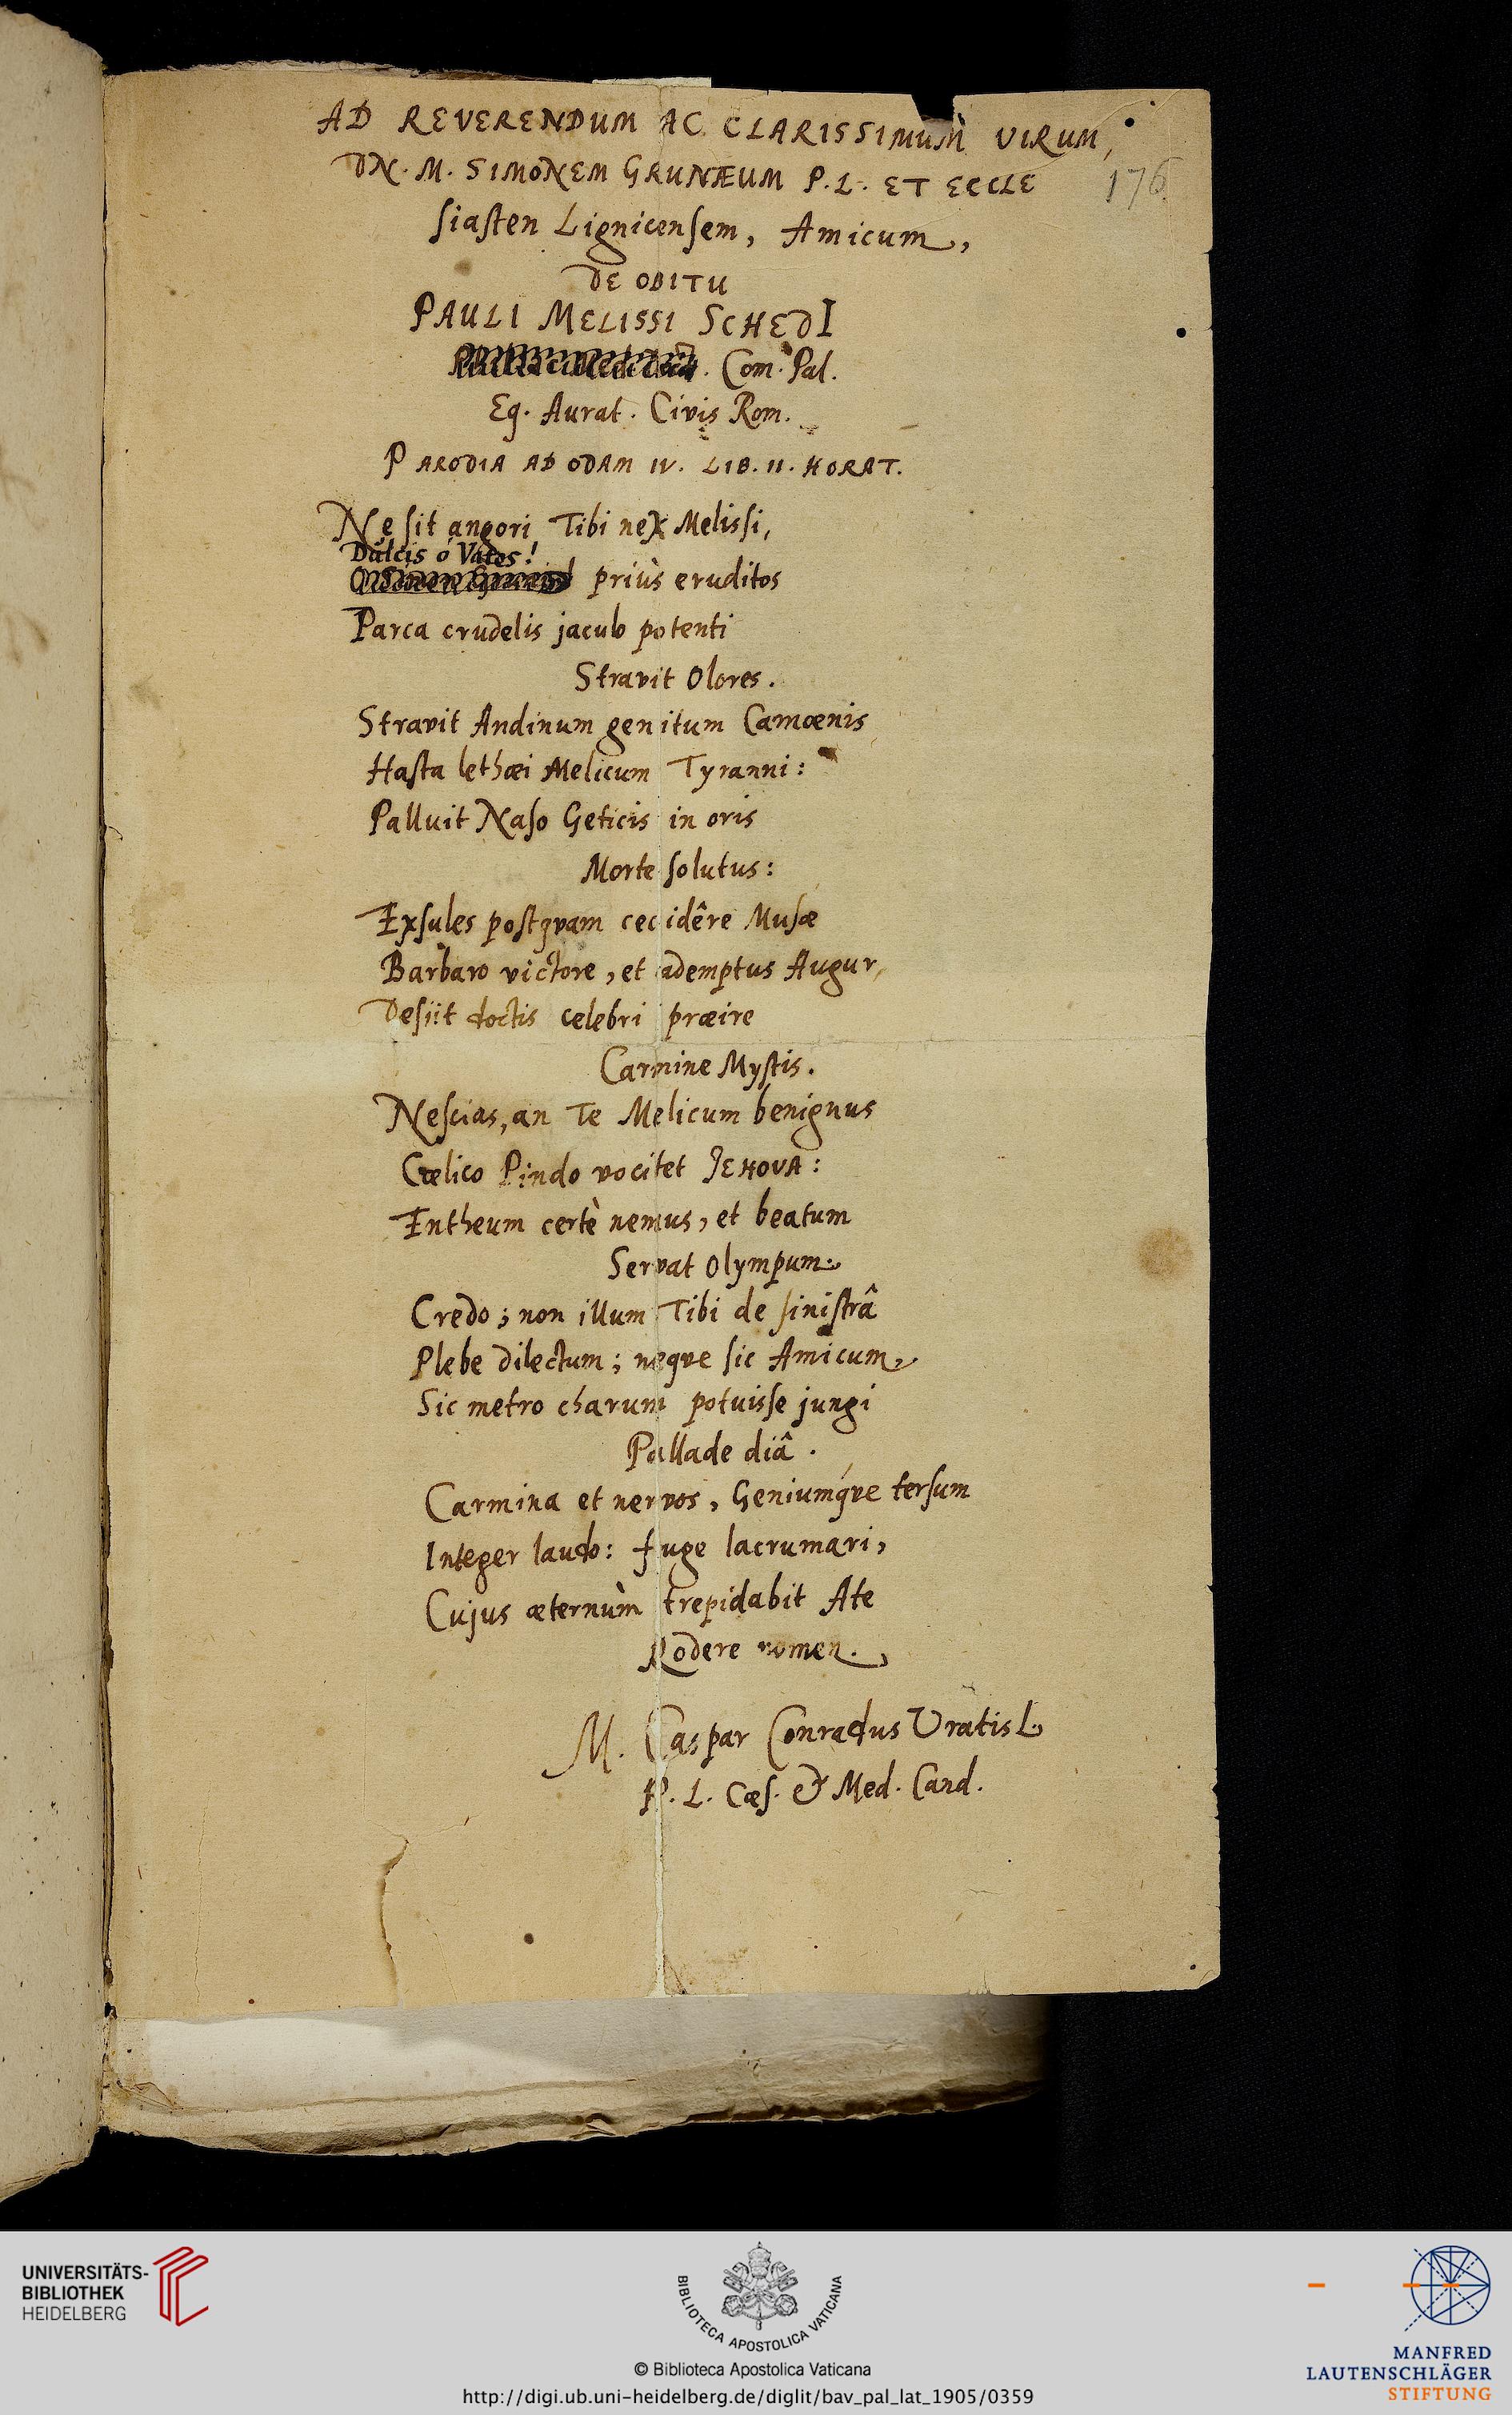 AD REVERENDUM AC CLARISSIMUM VIRUM,
DN. M. SIMONEM GRUNÆUM P. L. ET ECCLE
176
siasten Lignicensem, Amicum,
DE OBITU
PAULI MELISSI SCHEDI
Com. Pal.
Eq. Aurat. Civis Rom.
PARODIA AD ODAM IV. LIB. II. HORAT.
Ne sit angori Tibi nex Melissi,
Dulcis ô Vates!
priùs eruditos
Parca crudelis jaculo potenti
Stravit Olores.
Stravit Andinum genitum Camœnis
Hasta lethæi Melicum Tyranni:
Palluit Naso Geticis in oris
Morte solutus:
Exsules postqvam cecidêre Musæ
Barbaro victore, et ademptus Augur,
Desiit doctis celebri præire
Carmine Mystis.
Nescias, an Te Melicum benignus
Cœlico Pindo vocitet JEHOVA:
Entheum certè nemus, et beatum
Servat Olympum.
Credo; non illum Tibi de sinistrâ
Plebe dilectum; neqve sic Amicum,
Sic metro charum potuisse jungi
Pallade diâ.
Carmina et nervos, Geniumq́ve tersum
Integer laudo: fuge lacrumari,
Cujus æternùm trepidabit Ate
Rodere nomen.
M. Caspar Conradus Vratisl.
P. L. Cæs. & Med. Cand.
UNIVERSITÄTS-
BIBLIOTHEK
HEIDELBERG
BIBLIOTECA APOSTOLICA VATICANA
© Biblioteca Apostolica Vaticana
http://digi.ub.uni-heidelberg.de/diglit/bav_pal_lat_1905/0359
MANFRED
LAUTENSCHLÄGER
STIFTUNG